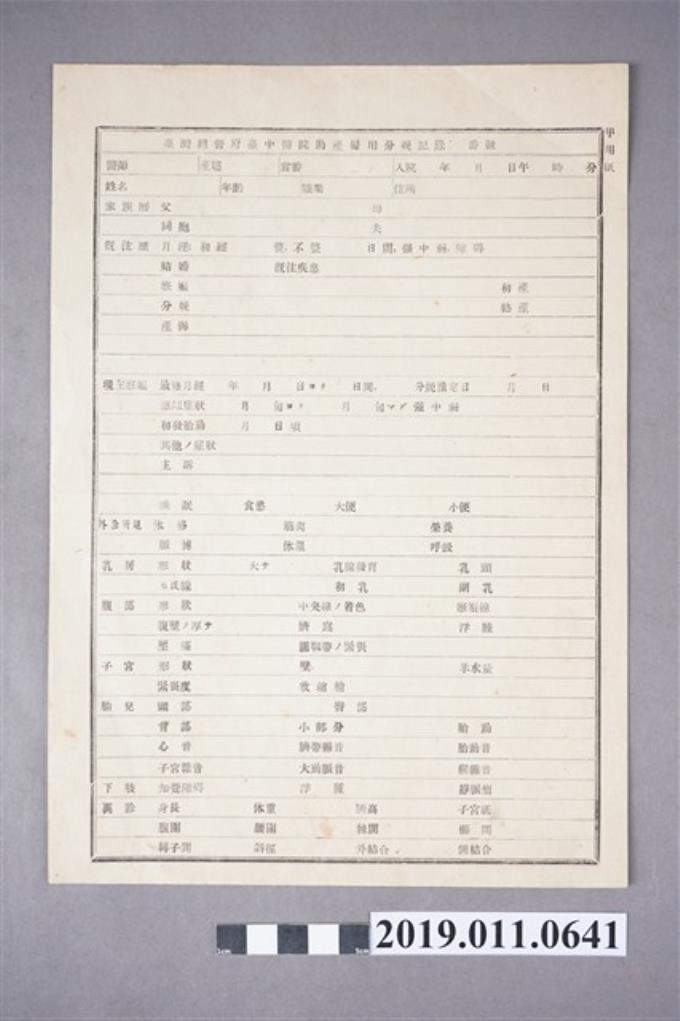 臺灣總督府臺中醫院助產婦用分娩記錄 番號
甲用紙
醫師 產婆 當番 入院 年 月 日午 時 分
姓名 年齡 職業 住所
家族歷 父 母
同胞 夫
既往歷 月經 初經 整,不整 日間,强中弱,障碍
結婚 既往疾患
妊娠 初產
分娩 終產
產褥
現在妊娠 最終月經 年 月 日ヨリ 日間, 分娩豫定日 月 日
妊娠症狀 月 旬ヨリ 月 旬マデ 强中弱
初發胎動 月 日頃
其他ノ症狀
主訴
睡眠 食慾 大便 小便
外診所見 体格 筋肉 榮養
脈搏 体溫 呼吸
乳房 形狀 大サ 乳腺發育 乳頭
モ氏腺 初乳 副乳
腹部 形狀 中央線ノ着色 妊娠線
腹壁ノ厚サ 臍窩 浮腫
壓痛 圓靱帶ノ緊張
子宮 形狀 壁 羊水量
緊張度 收縮輪
胎兒 頭部 臀部
背部 小部分 胎動
心音 臍帶雜音 胎動音
子宮雜音 大動脈音 腸雜音
下肢 知覺障碍 浮腫 靜脈瘤
測診 身長 体重 臍高 子宮底
腹圍 腰圍 棘間 櫛間
轉子間 斜徑 外結合 側結合
1cm 5cm
2019.011.0641